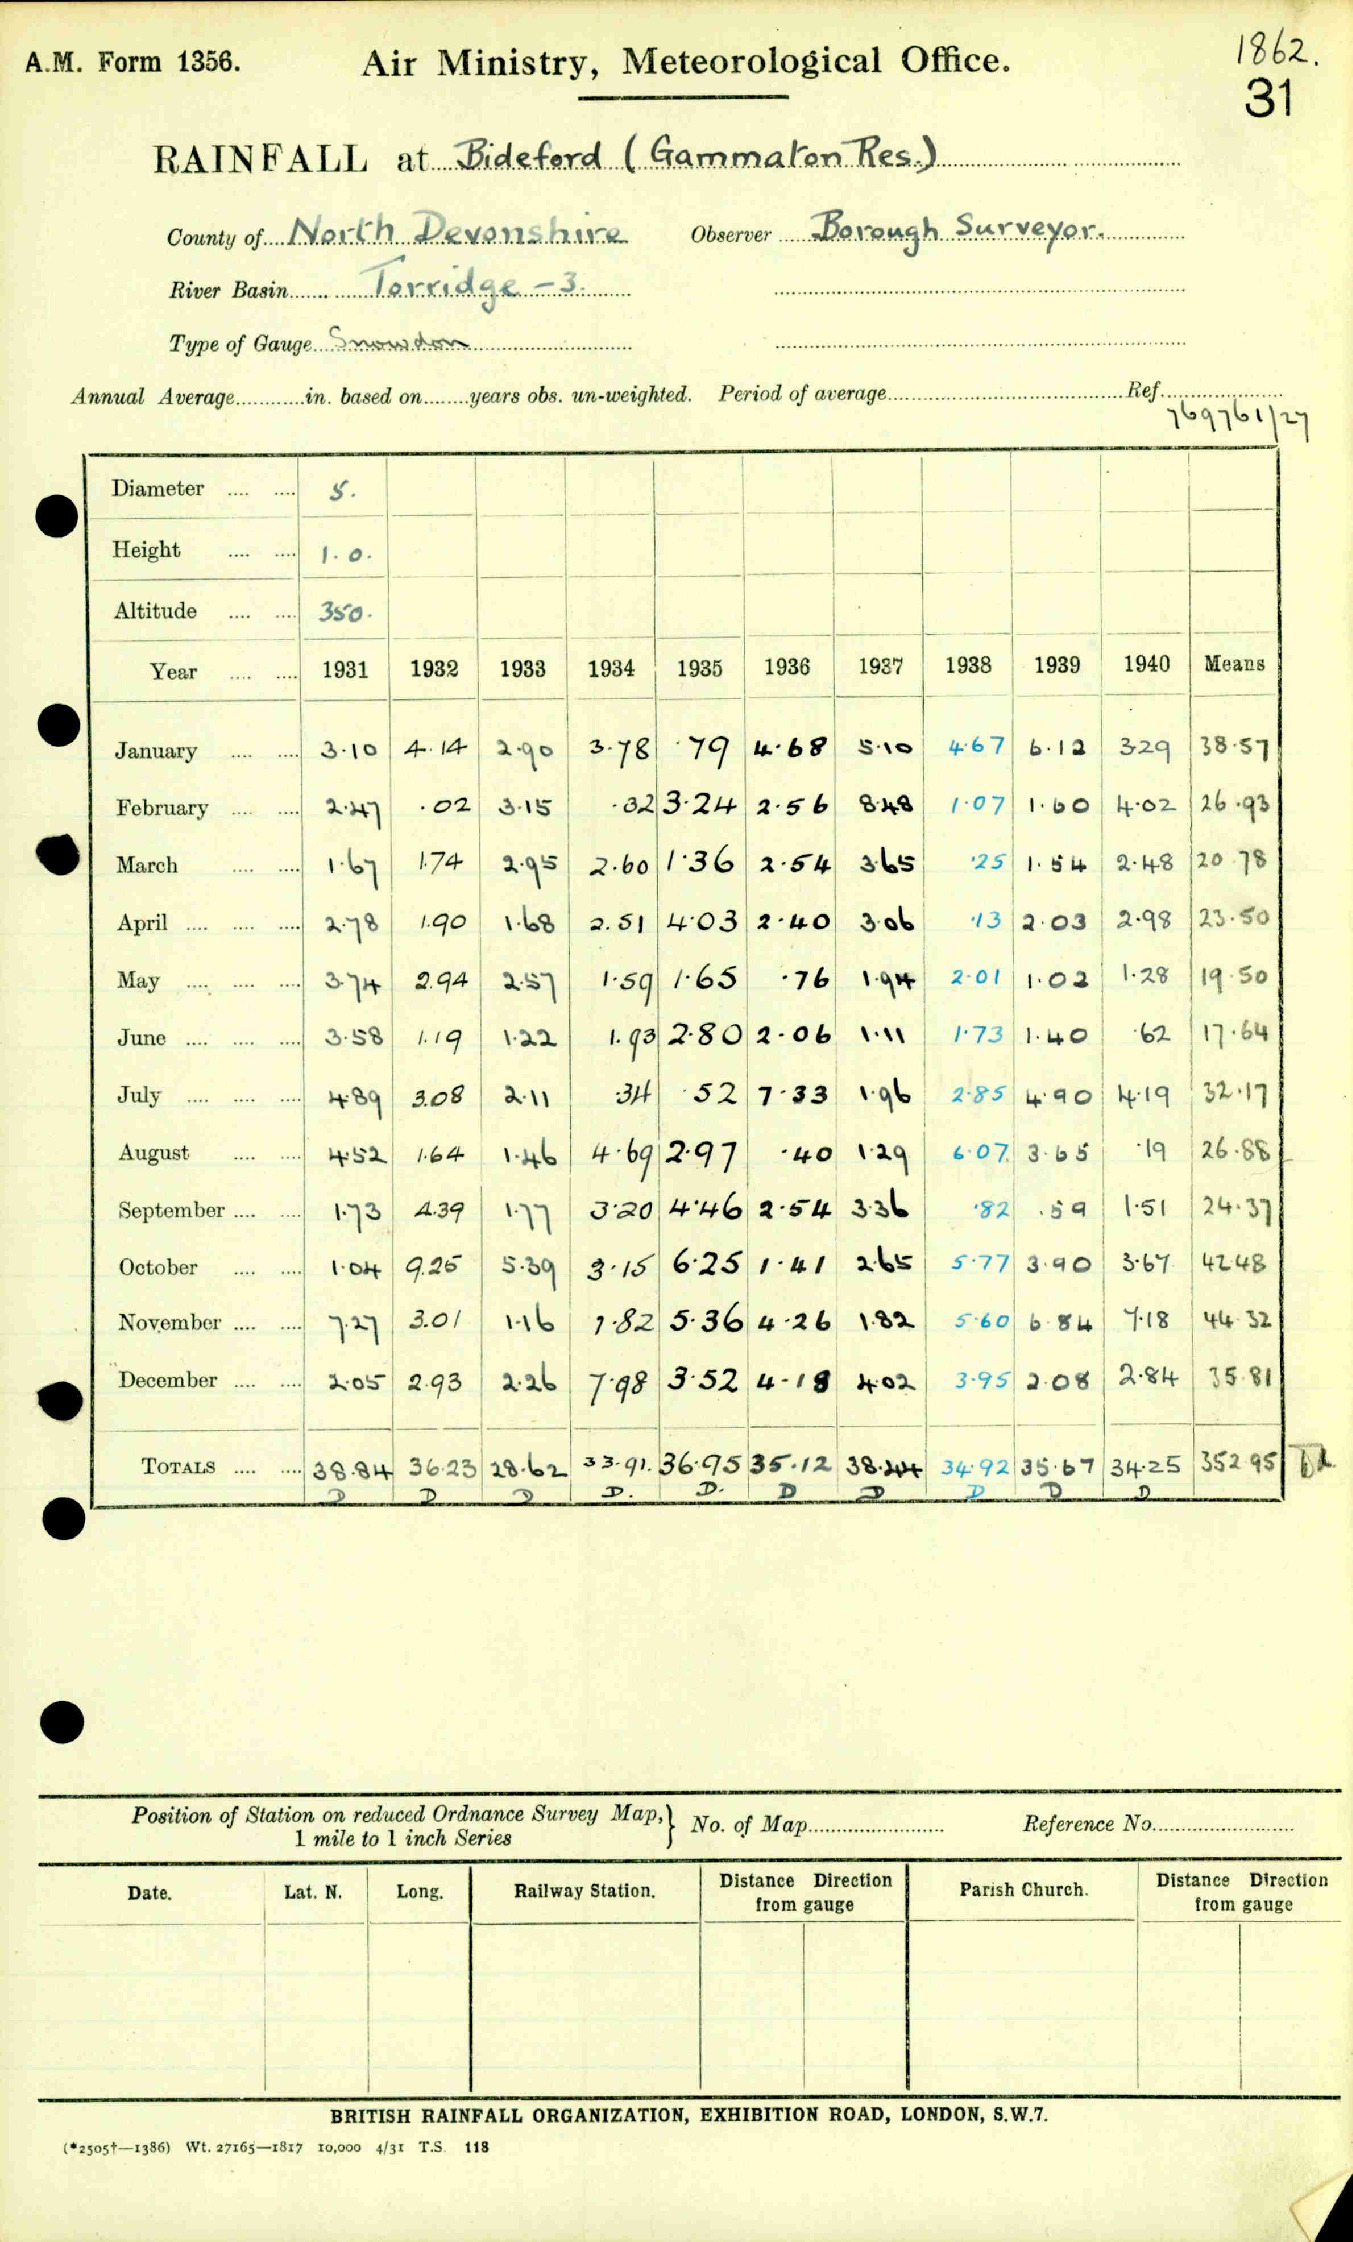 A.M. Form 1356. Air Ministry, Meteorological Office. 1862.
31
RAINFALL at Bideford (Gammaton Res.)
County of North Devonshire Observer Borough Surveyor.
River Basin Torridge - 3.
Type of Gauge Snowdon
Annual Average in. based on years obs. un-weighted. Period of average Ref.
769761/27
Diameter 5.
Height 1. 0.
Altitude 350.
Year 1931 1932 1933 1934 1935 1936 1937 1938 1939 1940 Means
January 3.10 4.14 2.90 3.78 .79 4.68 5.10 4.67 6.12 3.29 38.57
February 2.47 .02 3.15 .32 3.24 2.56 8.48 1.07 1.60 4.02 26.93
March 1.67 1.74 2.95 2.60 1.36 2.54 3.65 .25 1.54 2.48 20 78
April 2.78 1.90 1.68 2.51 4.03 2.40 3.06 .13 2.03 2.98 23.50
May 3.74 2.94 2.57 1.59 1.65 .76 1.94 2.01 1.02 1.28 19.50
June 3.58 1.19 1.22 1.93 2.80 2.06 1.11 1.73 1.40 .62 17.64
July 4.89 3.08 2.11 .34 .52 7.33 1.96 2.85 4.90 4.19 32.17
August 4.52 1.64 1.46 4.69 2.97 .40 1.29 6.07 3.65 .19 26.88
September 1.73 4.39 1.77 3.20 4.46 2.54 3.36 .82 .59 1.51 24.37
October 1.04 9.25 5.39 3.15 6.25 1.41 2.65 5.77 3.90 3.67 42.48
November 7.27 3.01 1.16 1.82 5.36 4.26 1.82 5.60 6.84 7.18 44 32
December 2.05 2.93 2.26 7.98 3.52 4.18 4.02 3.95 2.08 2.84 35.81
TOTALS 38.84 36.23 28.62 33.91. 36.95 35.12 38.44 34.92 35.67 34.25 352.95
D D D D. D. D D D D D
Position of Station on reduced Ordnance Survey Map, } No. of Map Reference No.
1 mile to 1 inch Series
Date. Lat. N. Long. Railway Station. Distance Direction from gauge Parish Church. Distance Direction from gauge
BRITISH RAINFALL ORGANIZATION, EXHIBITION ROAD, LONDON, S.W.7.
(*2505†—1386) Wt. 27165—1817 10,000 4/31 T.S. 118